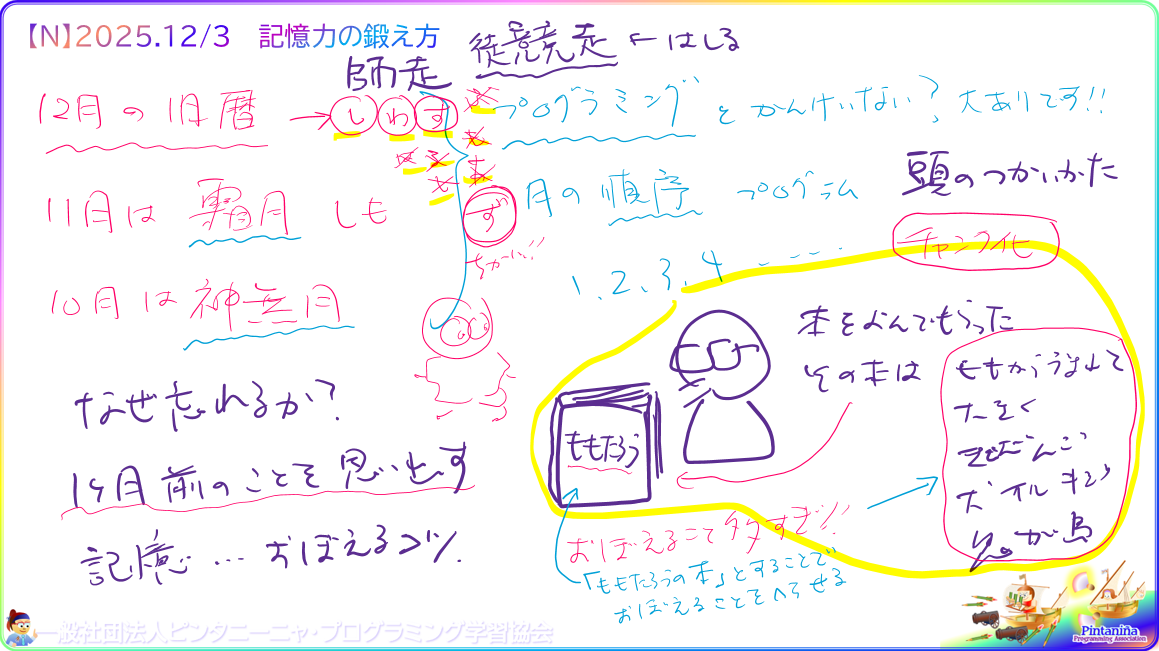 【N】2025.12/3　記憶力の鍛え方
徒競走 ← はしる
師走
12月の旧暦 → しわす
プログラミングとかんけいない? 大ありです!!
11月は 霜月 しも
ず
ちかい!!
月の順序 プログラム
頭のつかいかた
チャンク化
1、2、3、4
10月は神無月
本をよんでもらった
その本は
ももたろう
なぜ忘れるか?
1ヶ月前のことを思い出す
記憶…おぼえるコツ
おぼえること多すぎ!!
「ももたろうの本」とすることで
おぼえることをへらせる
一般社団法人ピンタニーニャ・プログラミング学習協会
Pintaniña
Programming Association